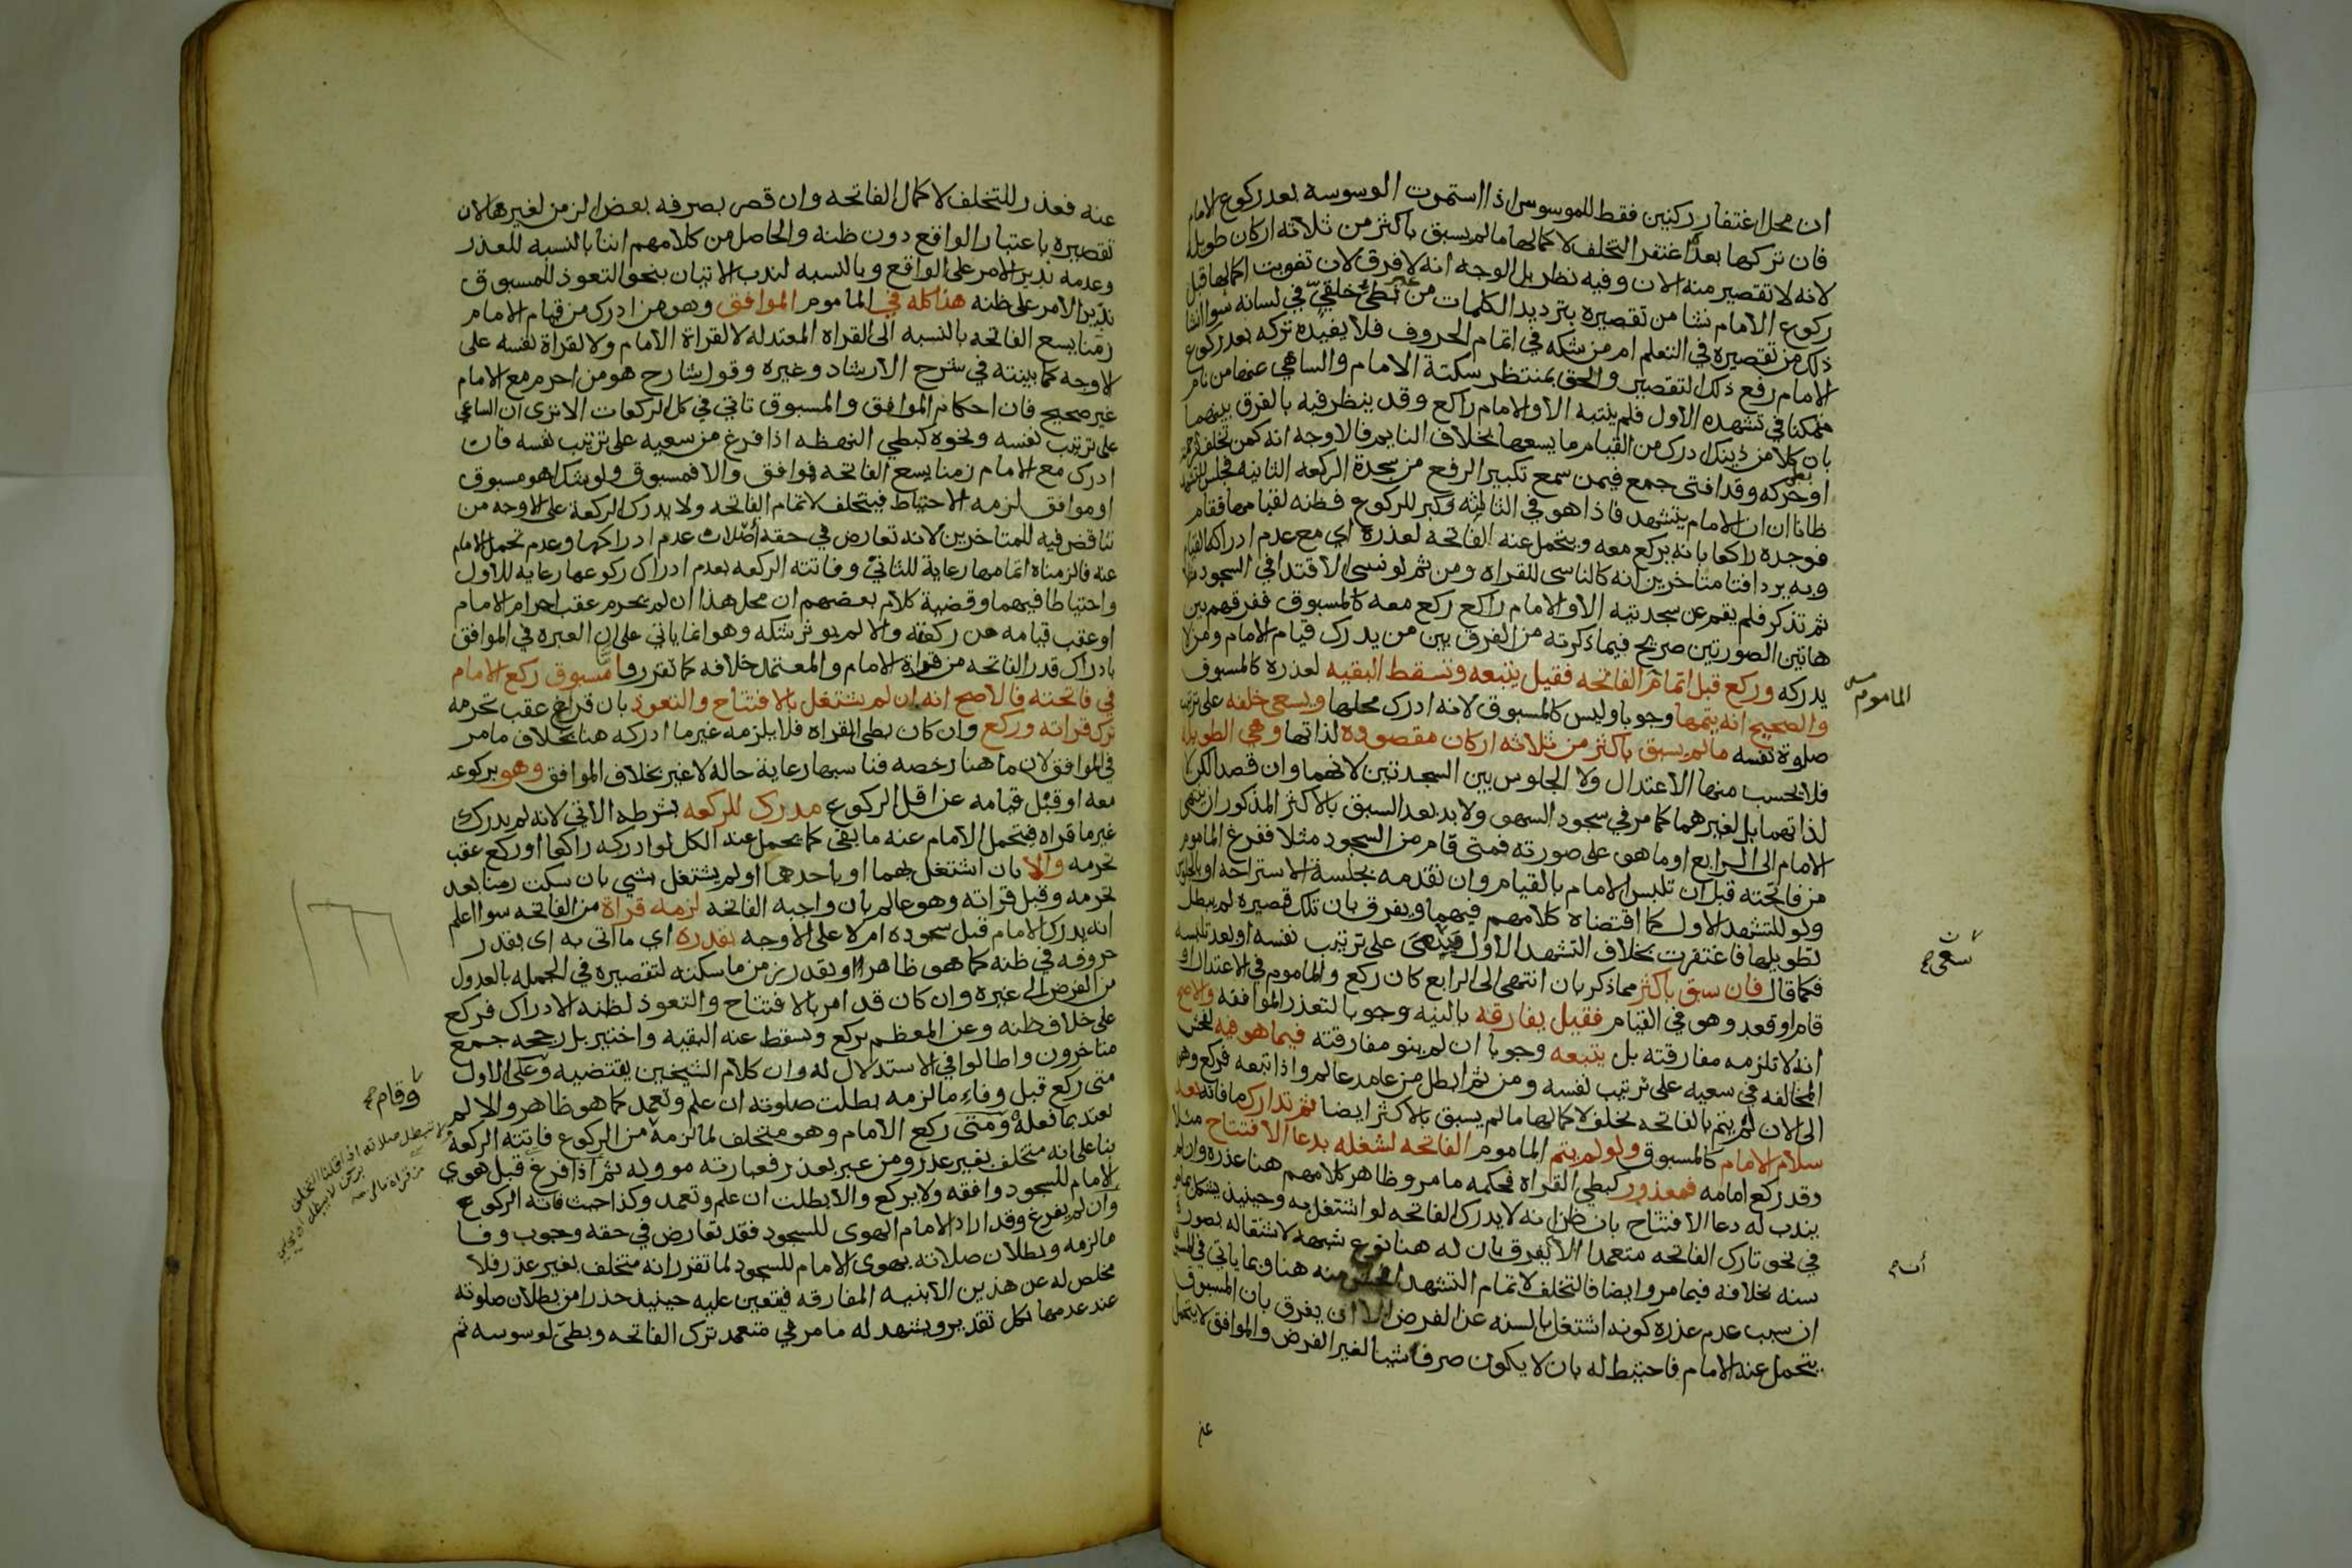 ان محل اغتفار ركنين فقط للموسوس اذا استمرت الوسوسه بعد ركوع الامام
فان تركها بعده اغتفر التخلف لاكمالها ما لم يسبق باكثر من ثلاثه اركان طويله
لانه لا تقصير منه الان وفيه نظر بل الاوجه انه لا فرق لان تفويت اكمالها قبل
ركوع الامام نشا من تقصيره بترديد الكلمات من غير بطئ خلقي في لسانه سوا انشا
ذلك من تقصيره في التعلم ام من شكه في اتمام الحروف فلا يفيده تركه بعد ركوع
الامام رفع ذلك التقصير والحق بمنتظر سكتة الامام والساهي عنها من نام
متمكنا في تشهده الاول فلم ينتبه الا والامام راكع وقد ينظر فيه بالفرق بينهما
بان كلا من ذينك ادرك من القيام ما يسعها بخلاف النايم فالاوجه انه كمن تخلف لزحمه
او بطئ حركه وقد افتى جمع فيمن سمع تكبير الرفع من سجدة الركعه الثانيه فجلس للتشهد
ظانا ان الامام يتشهد فاذا هو في الثالثه وكبر للركوع فظنه لقيامها فقام
فوجده راكعا بانه يركع معه ويتحمل عنه الفاتحه لعذره اي مع عدم ادراكه القيام
وبه يرد افتا متاخرين انه كالناسي للقراه ومن ثم لو نسي الاقتدا في السجود مثلا
ثم تذكر فلم يقم عن سجدتيه الا والامام راكع ركع معه كالمسبوق ففرقهم بين
هاتين الصورتين صريح فيما ذكرته من الفرق بين من يدرك قيام الامام ومن لا
يدركه وركع قبل اتمام الفاتحه فقيل يتبعه وتسقط البقيه لعذره كالمسبوق
والصحيح انه يتمها وجوبا وليس كالمسبوق لانه ادرك محلها ويسعى خلفه على ترتيب
صلوة نفسه ما لم يسبق باكثر من ثلاثه اركان مقصوده لذاتها وهي الطويله
فلا يحسب منها الاعتدال ولا الجلوس بين السجدتين لانهما وان قصدا لكن لا
لذاتهما بل لغيرهما كما مر في سجود السهو ولا بد بعد السبق بالاكثر المذكور ان ينتهي
الامام الى الرابع او ما هو على صورته فمتى قام من السجود مثلا ففرغ الماموم
من فاتحته قبل ان تلبس الامام بالقيام وان تقدمه بجلسة الاستراحه او بالجلوس
ولو للتشهد الاول كما اقتضاه كلامهم فيهما ويفرق بان تلك قصيره لم يبطل
تطويلها فاغتفرت بخلاف التشهد الاول على ترتيب نفسه او بعد تلبسه
فكما قال فان سبق باكثر مما ذكر بان انتهى الى الرابع كان ركع والماموم في الاعتدال او
قام او قعد وهو في القيام فقيل يفارقه بالنيه وجوبا لتعذر الموافقه والاصح
انه لا تلزمه مفارقته بل يتبعه وجوبا ان لم ينو مفارقته فيما هو فيه لفحش
المخالفه في سعيه على ترتيب نفسه ومن ثم ابطل من عامد عالم واذا تبعه فركع وهو
الى الان لم يتم بالفاتحه تخلف لاكمالها ما لم يسبق بالاكثر ايضا ثم تدارك ما فاته بعد
سلام الامام كالمسبوق ولو لم يتم الماموم الفاتحه لشغله بدعا الافتتاح مثلا
وقد ركع امامه فمعذور كبطي القراه فحكمه ما مر وظاهر كلامهم هنا عذره وان لم
يندب له دعا الافتتاح بان ظن انه لا يدرك الفاتحه لو اشتغل به وحينيذ يشكل بما مر
في نحو تارك الفاتحه متعمدا الا ان يفرق بان له هنا نوع شبهه لاشتغاله بصورة
سنه بخلافه فيما مر وايضا فالتخلف لاتمام التشهد افحش منه هنا وبما ياتي في المسبوق
ان سبب عدم عذره كونه اشتغل بالسنه عن الفرض الا ان يفرق بان المسبوق
يتحمل عنه الامام فاحتيط له بان لا يكون صرف شيئا لغير الفرض والموافق لا يتحمل
عنه
الماموم
سعى صح
عنه فعذر للتخلف لاكمال الفاتحه وان قصر بصرفه بعض الزمن لغيرها لان
تقصيره باعتبار الواقع دون ظنه والحاصل من كلامهم اننا بالنسبه للعذر
وعدمه ندير الامر على الواقع وبالنسبه لندب الاتيان بنحو التعوذ للمسبوق
ندير الامر على ظنه هذا كله في الماموم الموافق وهو من ادرك من قيام الامام
زمنا يسع الفاتحه بالنسبه الى القراه المعتدله لا لقراة الامام ولا لقراة نفسه على
الاوجه كما بينته في شرح الارشاد وغيره وقول شارح هو من احرم مع الامام
غير صحيح فان احكام الموافق والمسبوق تاتي في كل الركعات الا ترى ان الساعي
على ترتيب نفسه ونحوه كبطي النهضه اذا فرغ من سعيه على ترتيب نفسه فان
ادرك مع الامام زمنا يسع الفاتحه فوافق والا فمسبوق ولو شك اهو مسبوق
او موافق لزمه الاحتياط فيتخلف لاتمام الفاتحه ولا يدرك الركعة على الاوجه من
تناقض فيه للمتاخرين لانه تعارض في حقه اصلان عدم ادراكها وعدم تحمل الامام
عنه فالزمناه اتمامها رعاية للثاني وفاتته الركعه بعدم ادراك ركوعها رعايه للاول
واحتياطا فيهما وقضية كلام بعضهم ان محل هذا ان لم يحرم عقب احرام الامام
او عقب قيامه من ركعته والا لم يوثر شكه وهو انما ياتي على ان العبره في الموافق
بادراك قدر الفاتحه من قراة الامام والمعتمد خلافه كما تقرر فاما مسبوق ركع الامام
في فاتحته فالاصح انه ان لم يشتغل بالافتتاح والتعوذ بان قرا عقب تحرمه
ترك قراته وركع وان كان بطي القراه فلا يلزمه غير ما ادركه هنا بخلاف ما مر
في الموافق لان ما هنا رخصه فناسبها رعاية حاله لا غير بخلاف الموافق وهو بركوعه
معه او قبل قيامه عن اقل الركوع مدرك للركعه بشرطه الاتي لانه لم يدرك
غير ما قراه فيتحمل الامام عنه ما بقي كما يحمل عنه الكل لو ادركه راكعا او ركع عقب
تحرمه والا بان اشتغل بهما او باحدهما او لم يشتغل بشي بان سكت زمنا بعد
تحرمه وقبل قراته وهو عالم بان واجبه الفاتحه لزمه قراة من الفاتحه سوا اعلم
انه يدرك الامام قبل سجوده ام لا على الاوجه بقدره اي ما اتى به اي بقدر
حروفه في ظنه كما هو ظاهر او بقدر زمن ما سكته لتقصيره في الجمله بالعدول
من الفرض الى غيره وان كان قد امر بالافتتاح والتعوذ لظنه الادراك فركع
على خلاف ظنه وعن المعظم يركع وتسقط عنه البقيه واختير بل رجحه جمع
متاخرون واطالوا في الاستدلال له وان كلام الشيخين يقتضيه وعلى الاول
متى ركع قبل وفاء ما لزمه بطلت صلوته ان علم وتعمد كما هو ظاهر والا لم
يعتد بما فعله ومتى ركع الامام وهو متخلف لما لزمه من الركوع فاتته الركعة
بنا على انه متخلف بغير عذر ومن عبر بعذر فعبارته مووله ثم اذا فرغ قبل هوي
الامام للسجود وافقه ولا يركع والا بطلت ان علم وتعمد وكذا حيث فاته الركوع
وان لم يفرغ وقد اراد الامام الهوى للسجود فقد تعارض في حقه وجوب وفا
ما لزمه وبطلان صلاته بهوى الامام للسجود لما تقرر انه متخلف بغير عذر فلا
مخلص له عن هذين الا بنيه المفارقه فيتعين عليه حينيذ حذرا من بطلان صلوته
عند عدمها بكل تقدير ويشهد له ما مر في متعمد ترك الفاتحه وبطئ لوسوسه ثم
وقام صح